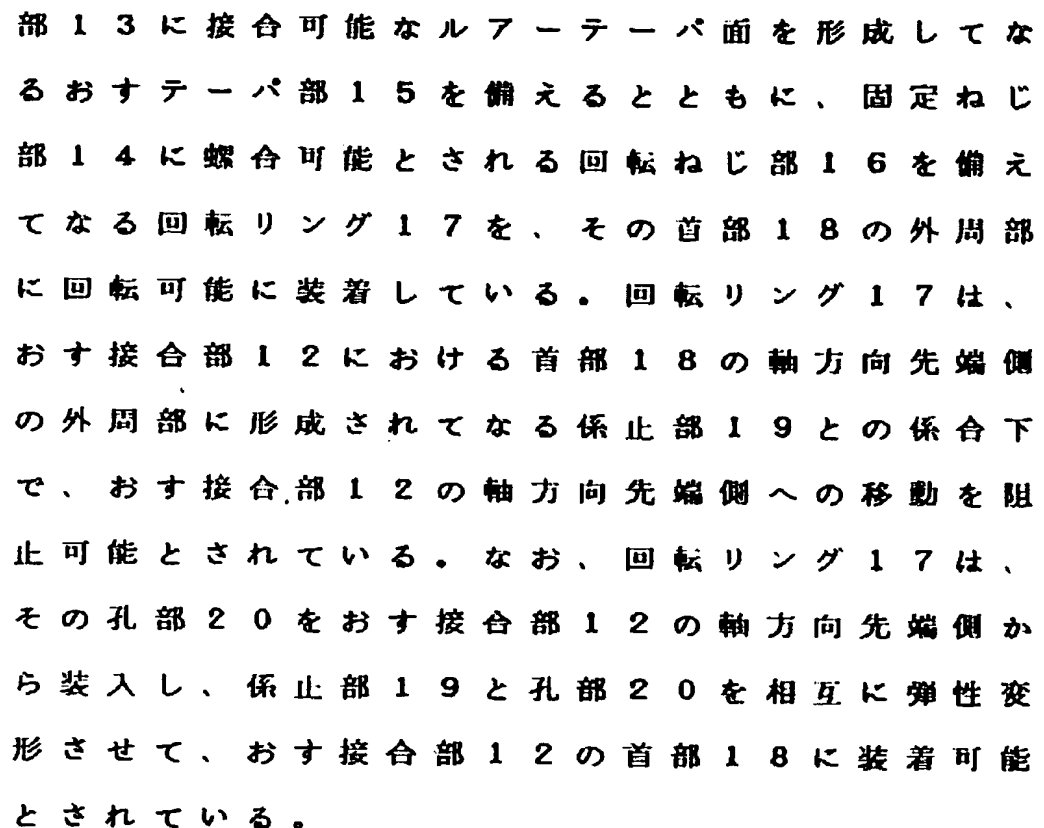 部13に接合可能なルアーテーパ面を形成してな
るおすテーパ部15を備えるとともに、固定ねじ
部14に螺合可能とされる回転ねじ部16を備え
てなる回転リング17を、その首部18の外周部
に回転可能に装着している。回転リング17は、
おす接合部12における首部18の軸方向先端側
の外周部に形成されてなる係止部19との係合下
で、おす接合部12の軸方向先端側への移動を阻
止可能とされている。なお、回転リング17は、
その孔部20をおす接合部12の軸方向先端側か
ら装入し、係止部19と孔部20を相互に弾性変
形させて、おす接合部12の首部18に装着可能
とされている。